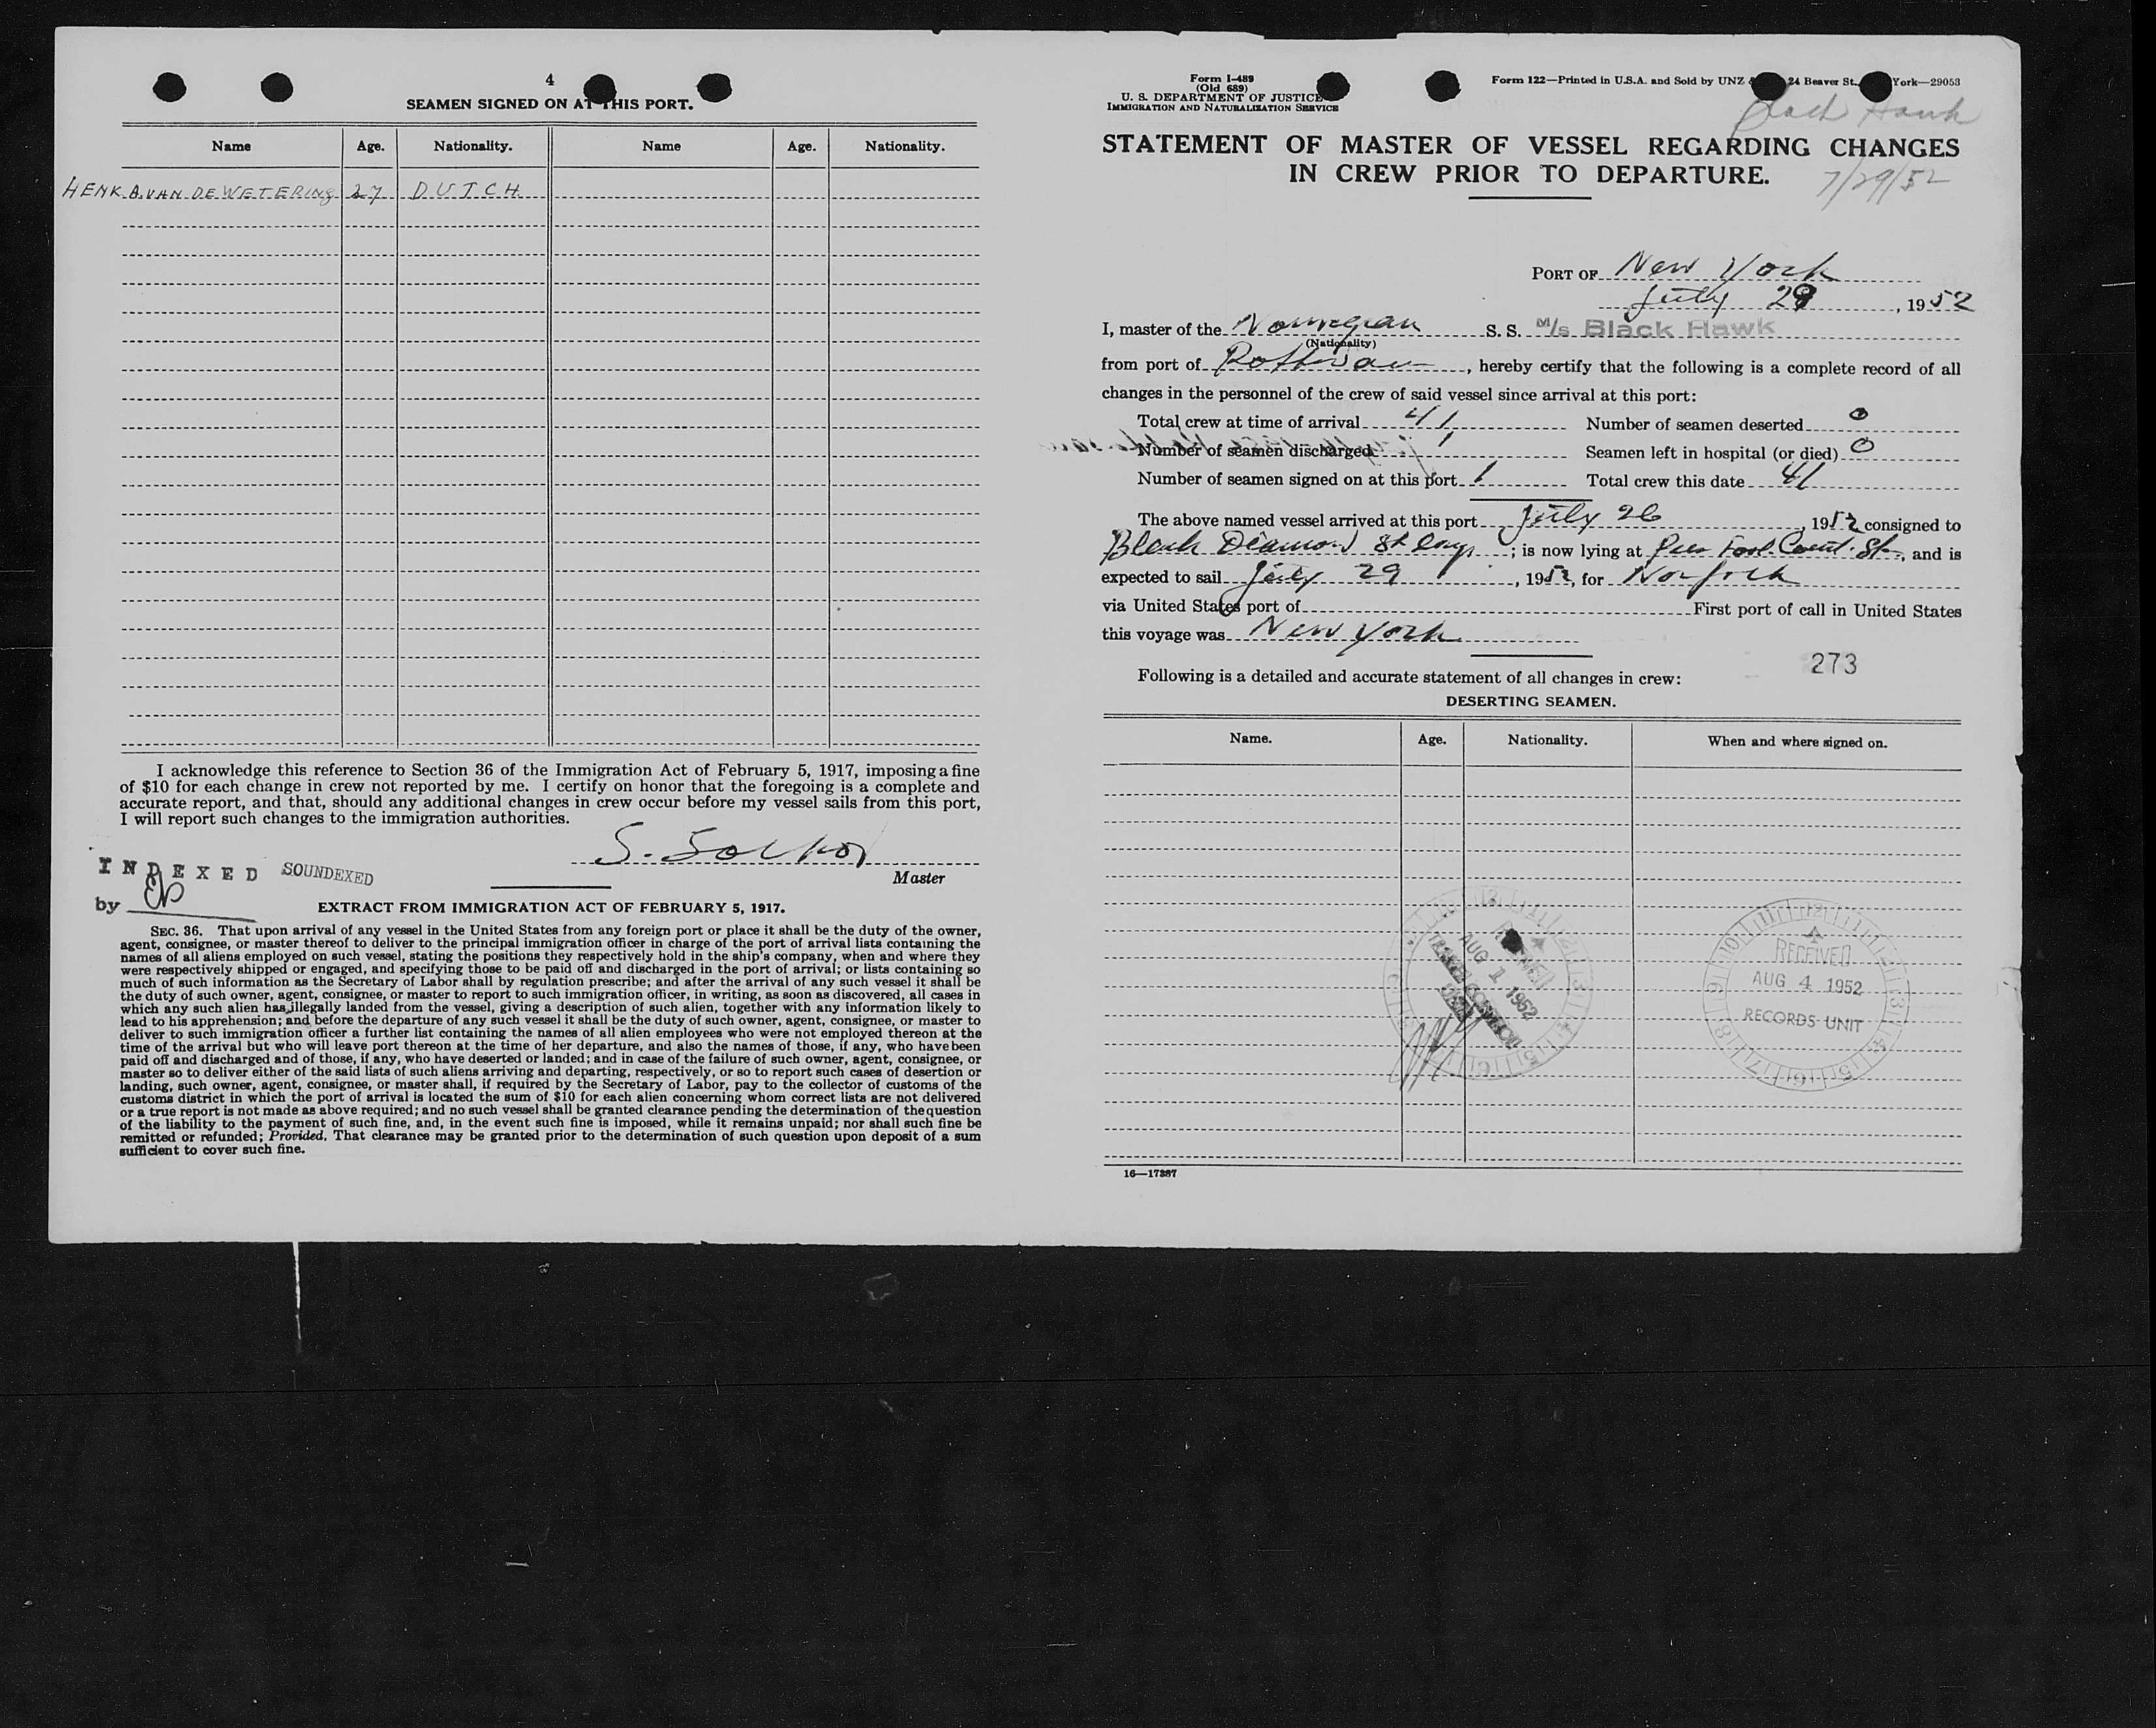 4
SEAMEN SIGNED ON AT THIS PORT.
Name Age. Nationality. Name Age. Nationality.
HENK A. VAN DE WETERING 27 DUTCH
I acknowledge this reference to Section 36 of the Immigration Act of February 5, 1917, imposing a fine
of $10 for each change in crew not reported by me. I certify on honor that the foregoing is a complete and
accurate report, and that, should any additional changes in crew occur before my vessel sails from this port,
I will report such changes to the immigration authorities.
S.
Master
INDEXED SOUNDEXED
by
EXTRACT FROM IMMIGRATION ACT OF FEBRUARY 5, 1917.
SEC. 36. That upon arrival of any vessel in the United States from any foreign port or place it shall be the duty of the owner,
agent, consignee, or master thereof to deliver to the principal immigration officer in charge of the port of arrival lists containing the
names of all aliens employed on such vessel, stating the positions they respectively hold in the ship's company, when and where they
were respectively shipped or engaged, and specifying those to be paid off and discharged in the port of arrival; or lists containing so
much of such information as the Secretary of Labor shall by regulation prescribe; and after the arrival of any such vessel it shall be
the duty of such owner, agent, consignee, or master to report to such immigration officer, in writing, as soon as discovered, all cases in
which any such alien has illegally landed from the vessel, giving a description of such alien, together with any information likely to
lead to his apprehension; and before the departure of any such vessel it shall be the duty of such owner, agent, consignee, or master to
deliver to such immigration officer a further list containing the names of all alien employees who were not employed thereon at the
time of the arrival but who will leave port thereon at the time of her departure, and also the names of those, if any, who have been
paid off and discharged and of those, if any, who have deserted or landed; and in case of the failure of such owner, agent, consignee, or
master so to deliver either of the said lists of such aliens arriving and departing, respectively, or so to report such cases of desertion or
landing, such owner, agent, consignee, or master shall, if required by the Secretary of Labor, pay to the collector of customs of the
customs district in which the port of arrival is located the sum of $10 for each alien concerning whom correct lists are not delivered
or a true report is not made as above required; and no such vessel shall be granted clearance pending the determination of the question
of the liability to the payment of such fine, and, in the event such fine is imposed, while it remains unpaid; nor shall such fine be
remitted or refunded; Provided, That clearance may be granted prior to the determination of such question upon deposit of a sum
sufficient to cover such fine.
Form I-489
(Old 689)
U. S. DEPARTMENT OF JUSTICE
IMMIGRATION AND NATURALIZATION SERVICE
Form 122—Printed in U.S.A. and Sold by UNZ 24 Beaver St., York—29053
Black Hawk
STATEMENT OF MASTER OF VESSEL REGARDING CHANGES
IN CREW PRIOR TO DEPARTURE.
7/29/52
PORT OF New York
July 29, 1952
I, master of the Norwegian S. S. M/s Black Hawk
(Nationality)
from port of Rotterdam, hereby certify that the following is a complete record of all
changes in the personnel of the crew of said vessel since arrival at this port:
Total crew at time of arrival 41 Number of seamen deserted 0
Number of seamen discharged 1 Seamen left in hospital (or died) 0
Number of seamen signed on at this port 1 Total crew this date 41
The above named vessel arrived at this port July 26, 1952 consigned to
Black Diamond ; is now lying at Pier Foot St., and is
expected to sail July 29, 1952, for Norfolk
via United States port of First port of call in United States
this voyage was New York
273
Following is a detailed and accurate statement of all changes in crew:
DESERTING SEAMEN.
Name. Age. Nationality. When and where signed on.
AUG 1 1952
RECEIVED
AUG 4 1952
RECORDS UNIT
16—17387